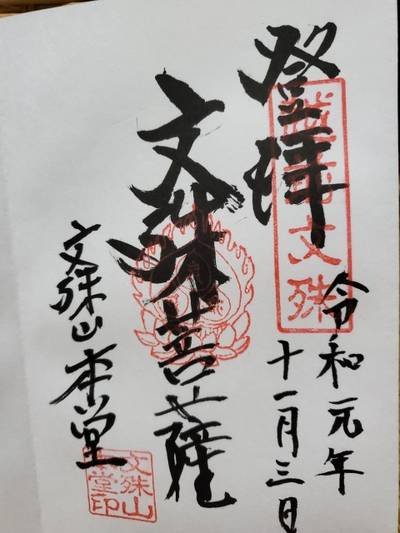 登拝
文殊
令和元年
十一月三日
文殊菩薩
文殊山本堂
文殊山
本堂印